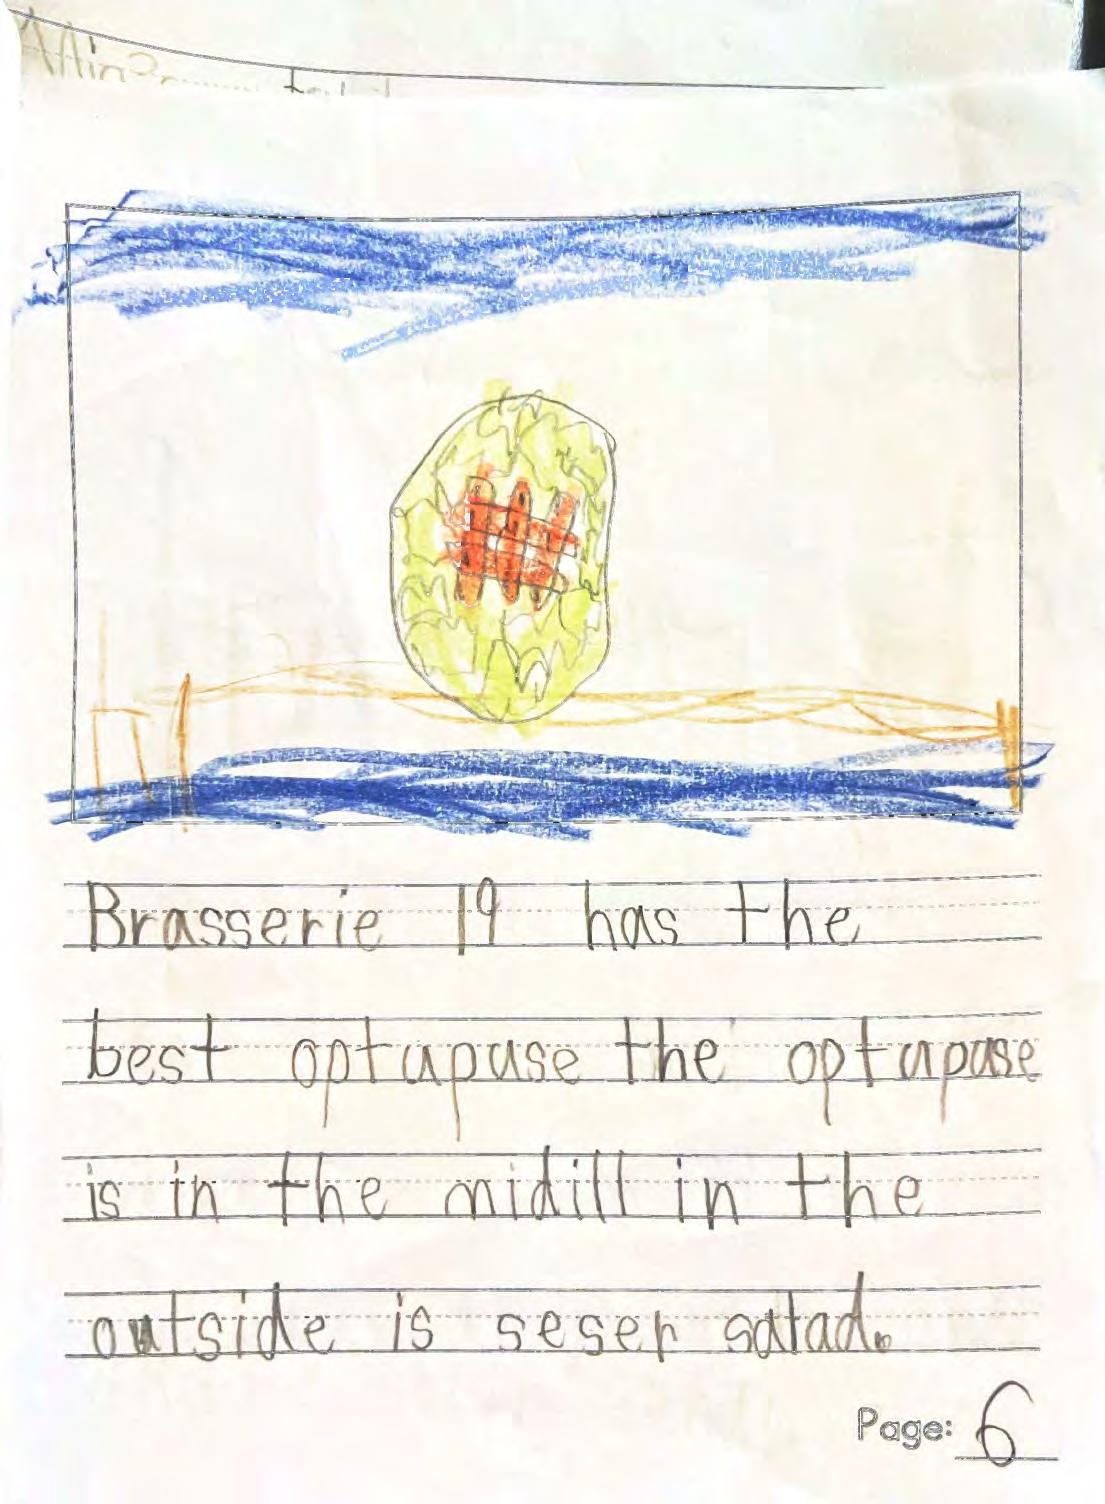 Brasserie 19 has the
best optapuse the optapuse
is in the midill in the
outside is seser salad.
Page: 6